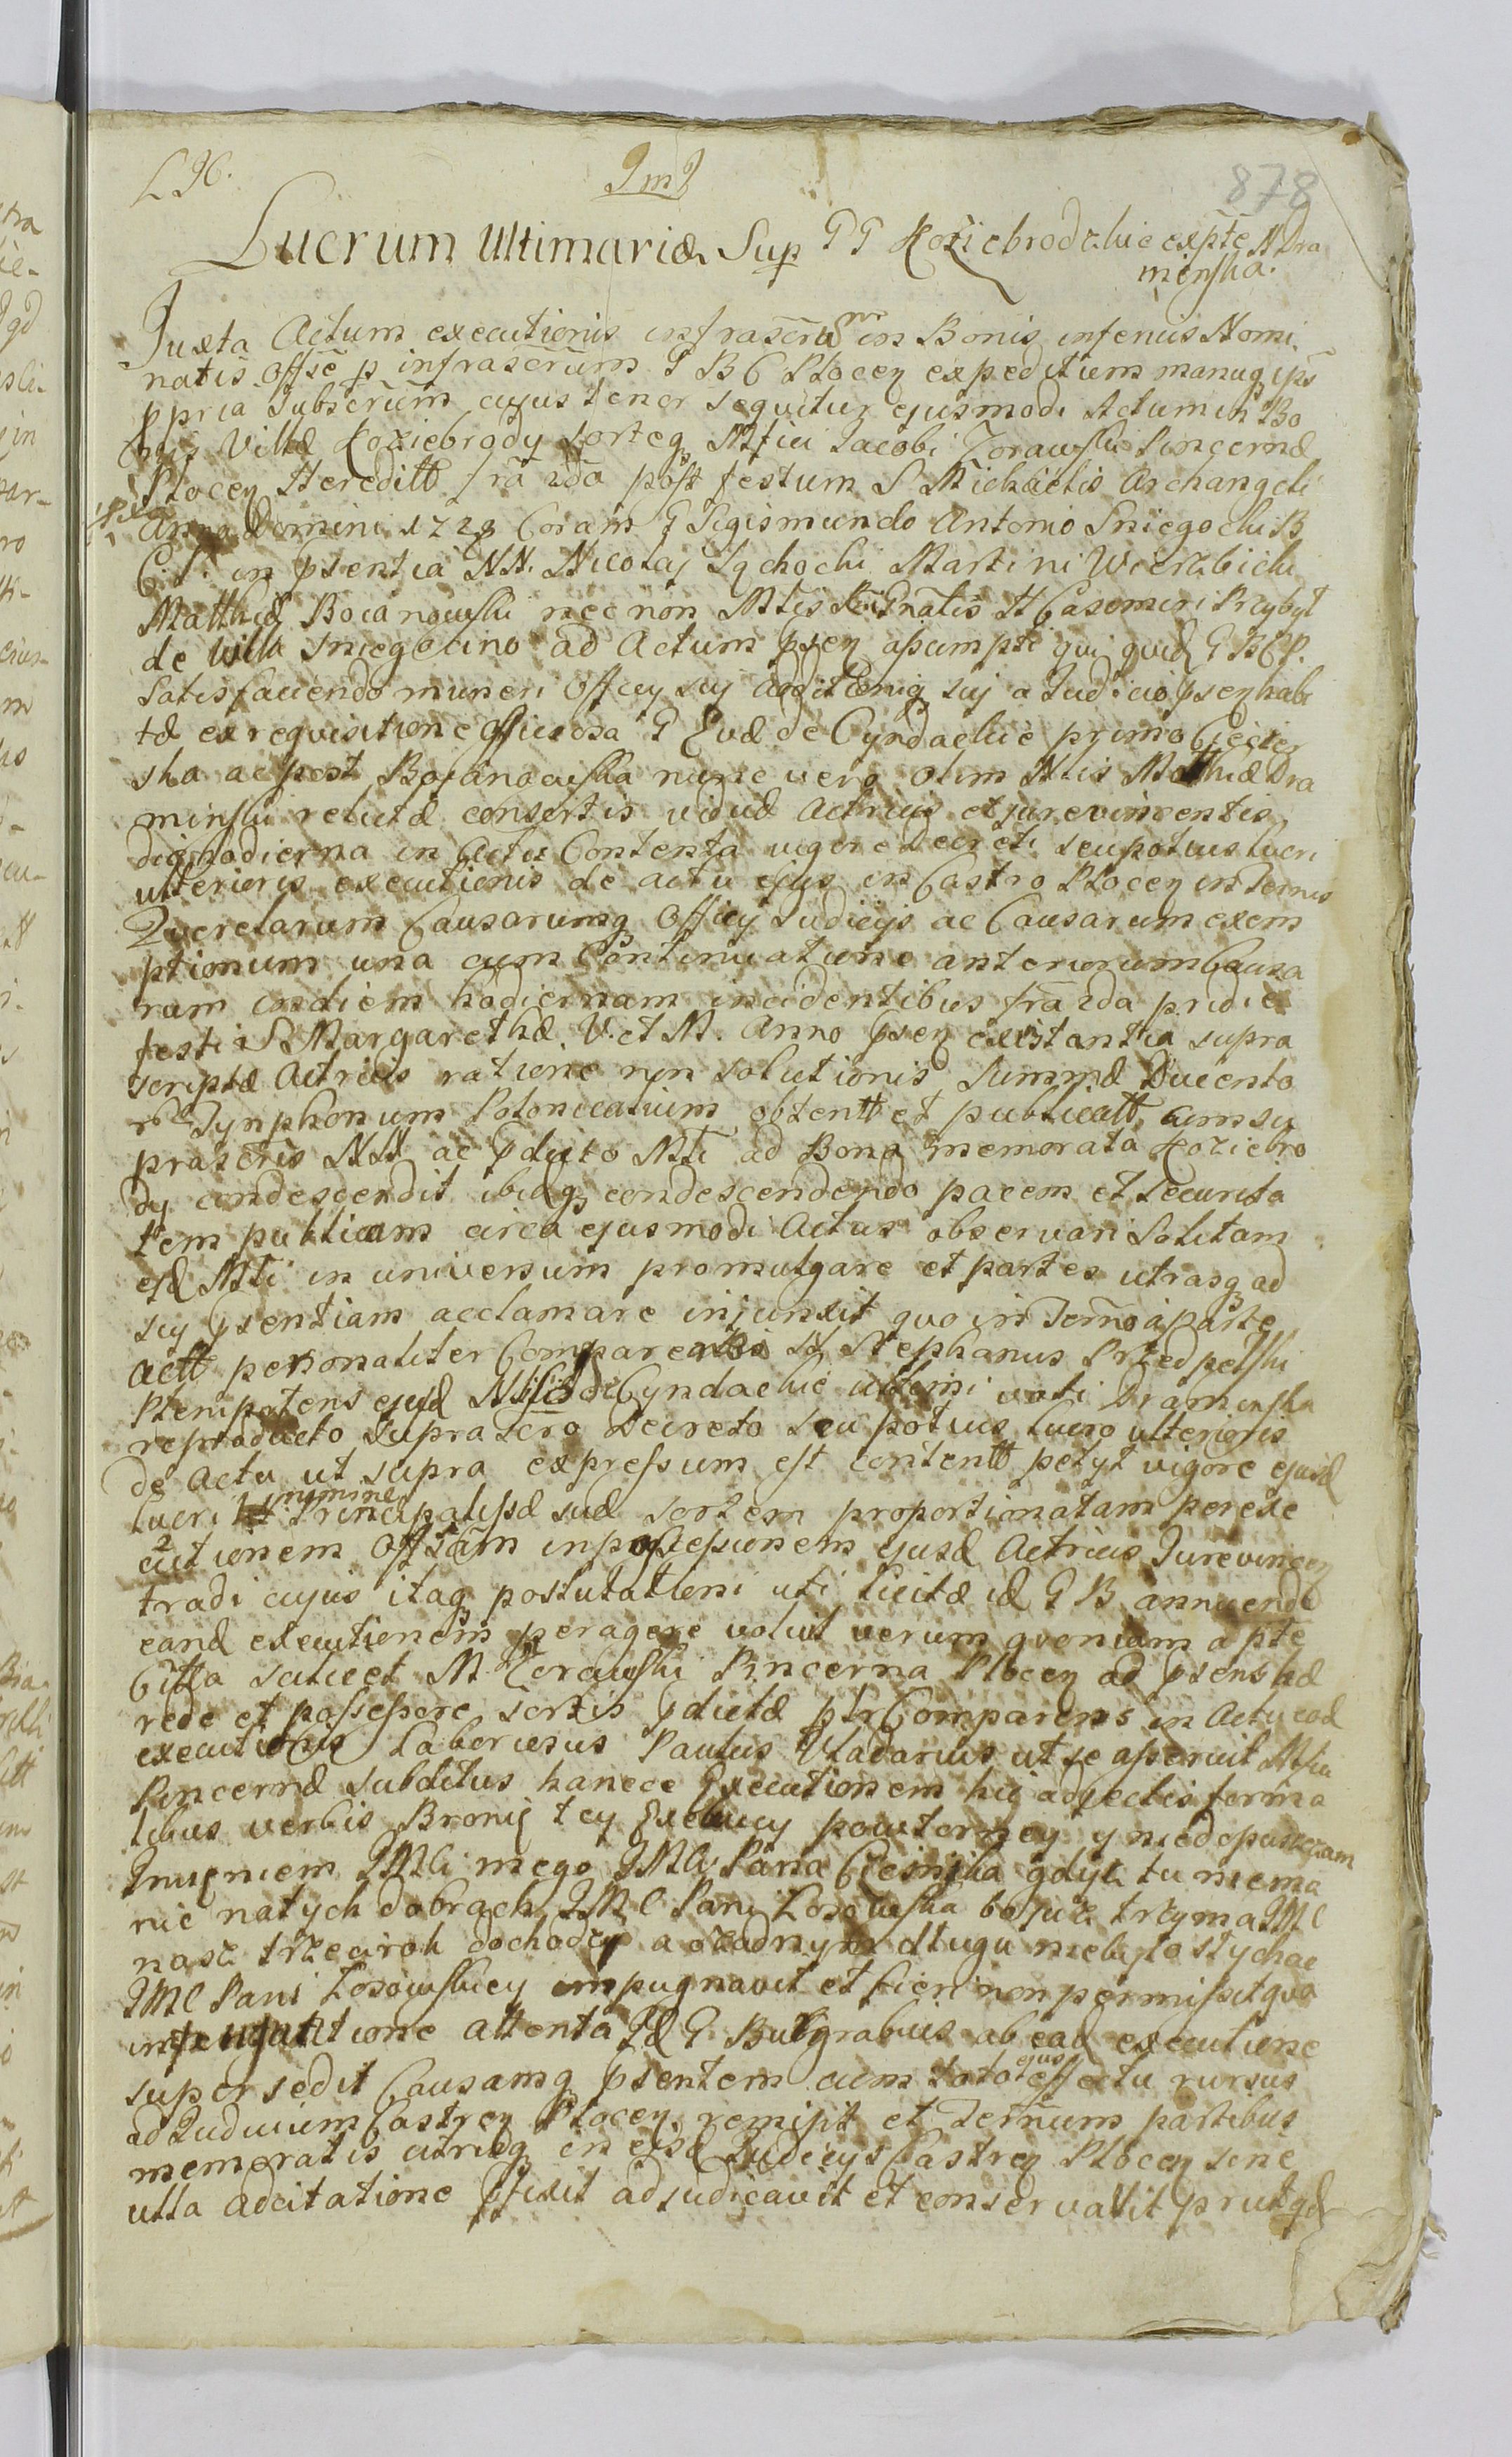 878
Lucrum Ultimariæ Sup GG Koziebrodzkie expte N Dra
minska.
Juxta Actum executionis infrascru in Bonis inferius Nomi
natis Offse p infrascrum G B C Plocen expeditum manuq ips
ppria Subscrum cujus tenor sequitur ejusmodi Actum in Bo
nis Villæ Koziebrody Sorteq Mfici Jacobi Zorawski Pincernæ
Plocen Hereditt fra 2da post festum S Michaelis Archangeli
Anno Domini 1728 Coram G Sigismundo Antonio Sniegocki B
C P. in psentia NN. Nicolaj Martini Wierzbicki
Matthiæ Boianowski nec non Mtis Rni Gnalis H Casimiri Przybyt
de Villa Sniegocino ad Actum psen assumpte qui quid G B C P.
Satisfaciendo muneri Officy suj additioniq suj a Judicio psen habi
tæ ex requisitione Officiosa G Evæ de Cyndackie primo
ska ac post Bojanowska nunc vero olim Ntis Matthiæ Dra
minski relictæ consortis viduæ Actricis et jurevincentis
die hodierna in Actu Contenta vigore Decreti seu potius lucri
ulterioris executionis de actu ejus in Castro Plocen in Termis
Querelarum Causarumq Officy Judicijs ac Causarum exem
ptionum una cum Continuatione anteriorum Causa
rum in diem hodiernam incidentibus fra 2da pridie
festi S Margarethæ V. et M. Anno psen existantia supra
scriptæ Actricis ratione non solutionis Summæ Ducento
rum Tynphonum Polonicalium obtentt et publicatt cum su
prascris NN ac pdicto Mti ad Bona memorata Koziebro
dy condescendit ibidq condescendendo pacem et securita
tem publicam circa ejusmodi Actus observari Solitam
ejd Mti in universum promulgare et partes utrasq ad
suy psentiam acclamare injunxit quo in Termo a parte
Actt personaliter Comparens N Stephanus Przedpelski
Plenipotens ejusd Nblis de Cyndackie ultimi voti Draminska
reproducto Suprascro Decreto seu potius lucro ulterioris
de Actu ut supra expressum est contentt petyt vigore ejusd
lucri nomine Principalissæ suæ sortem proportionatam per exe
cutionem Offsam in possessionem ejusd Actricis Jurevincen
tradi cujus itaq postulationi uti licitæ id G B annuendo
eand executionem peragere voluit verum quoniam a pte
Citta scilicet M Zorawski Pincerna Plocen ad psens hæ
rede et possessore sortis pdictæ pltr Comparens in Actu ead
executionis Laboriosus Paulus Vladarius ut se asseruit Mfici
Pincernæ subditus hancce Executionem hic adjectis forma
libus verbis Bronię tey Exekucyi powtorney y niedopuszczam
Imieniem IMCi mego IMCi Pana Czesnika gdysz tu niema
nic natych dobrach IMC Pani Losowska bo jusz trzyma IMC
nasz trzeci rok dochodzą a ożadnym dlugu niebylo słychac
IMC Pani Losowskiey impugnavit et fieri non permissit qua
impugnatione attenta Id G Burgrabius ab ead executione
supersedit Causamq psentem cum toto ejus effectu rursus
ad Judicium Castren Plocen remisit et Termum partibus
memoratis utrisq in ejsd Judicys Castren Plocen sine
ulla adcitatione pfixit adjudicavit et conservavit prut qd